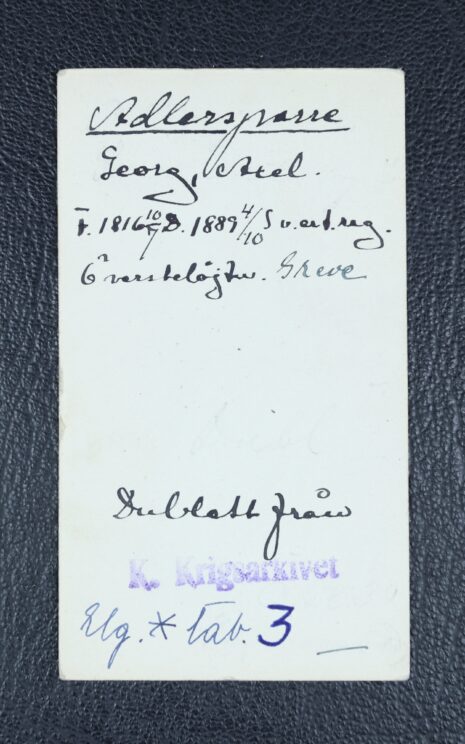 Adlersparre
Georg, Axel.
F. 1816 10/7 D. 1889 4/10 Sv. art. reg.
Överstelöjtn. Greve
Dublett från
K. Krigsarkivet
Elg. * Tab. 3